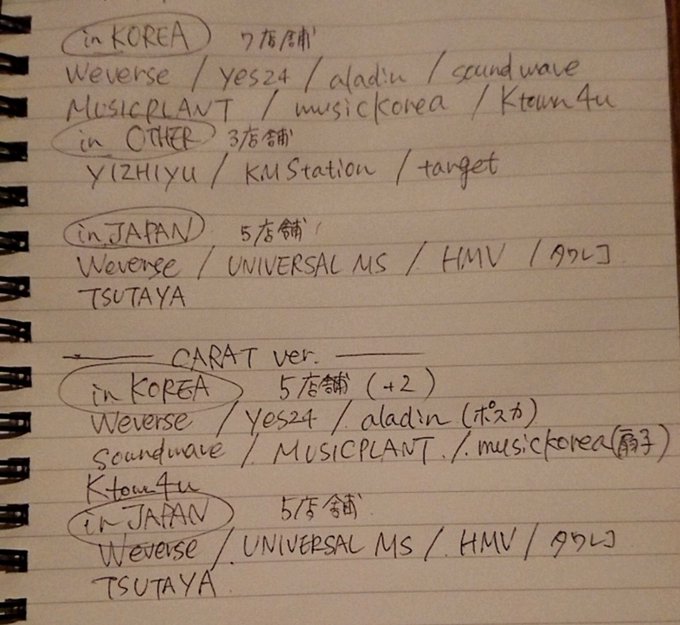 in KOREA 7店舗
Weverse / yes24 / aladin / soundwave
MUSICPLANT / musickorea / Ktown4u
in OTHER 3店舗
YIZHIYU / KMStation / target
in JAPAN 5店舗
Weverse / UNIVERSAL MS / HMV / タワレコ
TSUTAYA
CARAT ver.
in KOREA 5店舗 (+2)
Weverse / yes24 / aladin (ポスカ)
soundwave / MUSICPLANT / musickorea (扇子)
Ktown4u
in JAPAN 5店舗
Weverse / UNIVERSAL MS / HMV / タワレコ
TSUTAYA